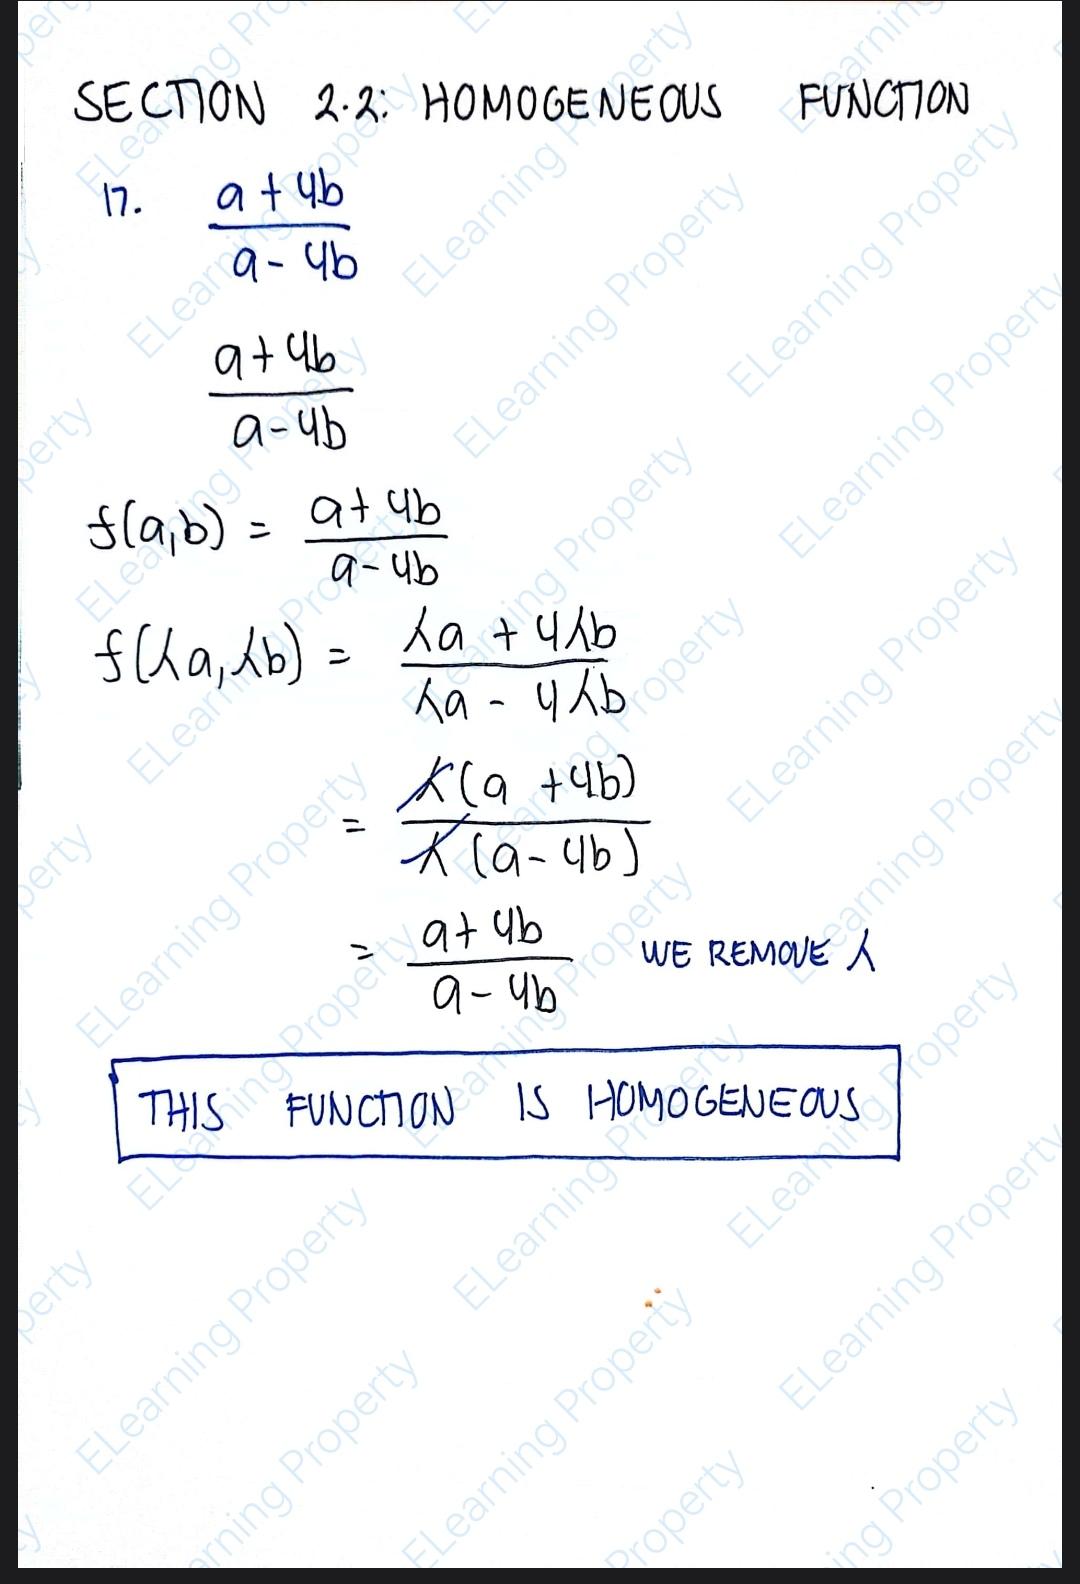 SECTION 2.2: HOMOGENEOUS FUNCTION
17. a + 4b
a - 4b
a + 4b
a - 4b
f(a,b) = a + 4b
a - 4b
f(λa, λb) = λa + 4λb
λa - 4λb
= λ(a + 4b)
λ(a - 4b)
= a + 4b
a - 4b
WE REMOVE λ
THIS FUNCTION IS HOMOGENEOUS
ELearning Property